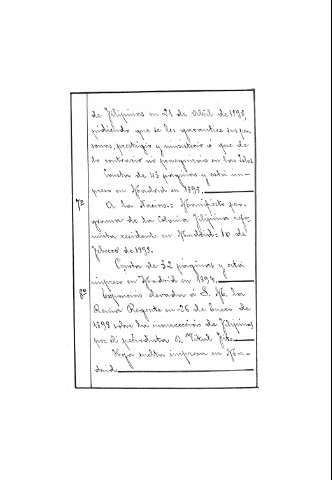 de Filipinas en 21 de Abril de 1898,
pidiendo que se les garantice sus per
sonas, prestigio y ministerio ó que de
lo contrario no permanecerán en las Islas
Consta de 43 páginas y está im-
preso en Madrid en 1898.
7º A la Nacion: Manifiesto pro-
grama de la Colonia Filipina refor-
mista residente en Madrid: 10 de
Febrero de 1898.
Consta de 32 páginas y está
impreso en Madrid en 1898.
8º Exposición elevada á S. M. la
Reina Regente en 26 de Enero de
1898 sobre la insurrección de Filipinas
por el periodista D. Vital Fité
Hoja suelta impresa en Ma-
drid.